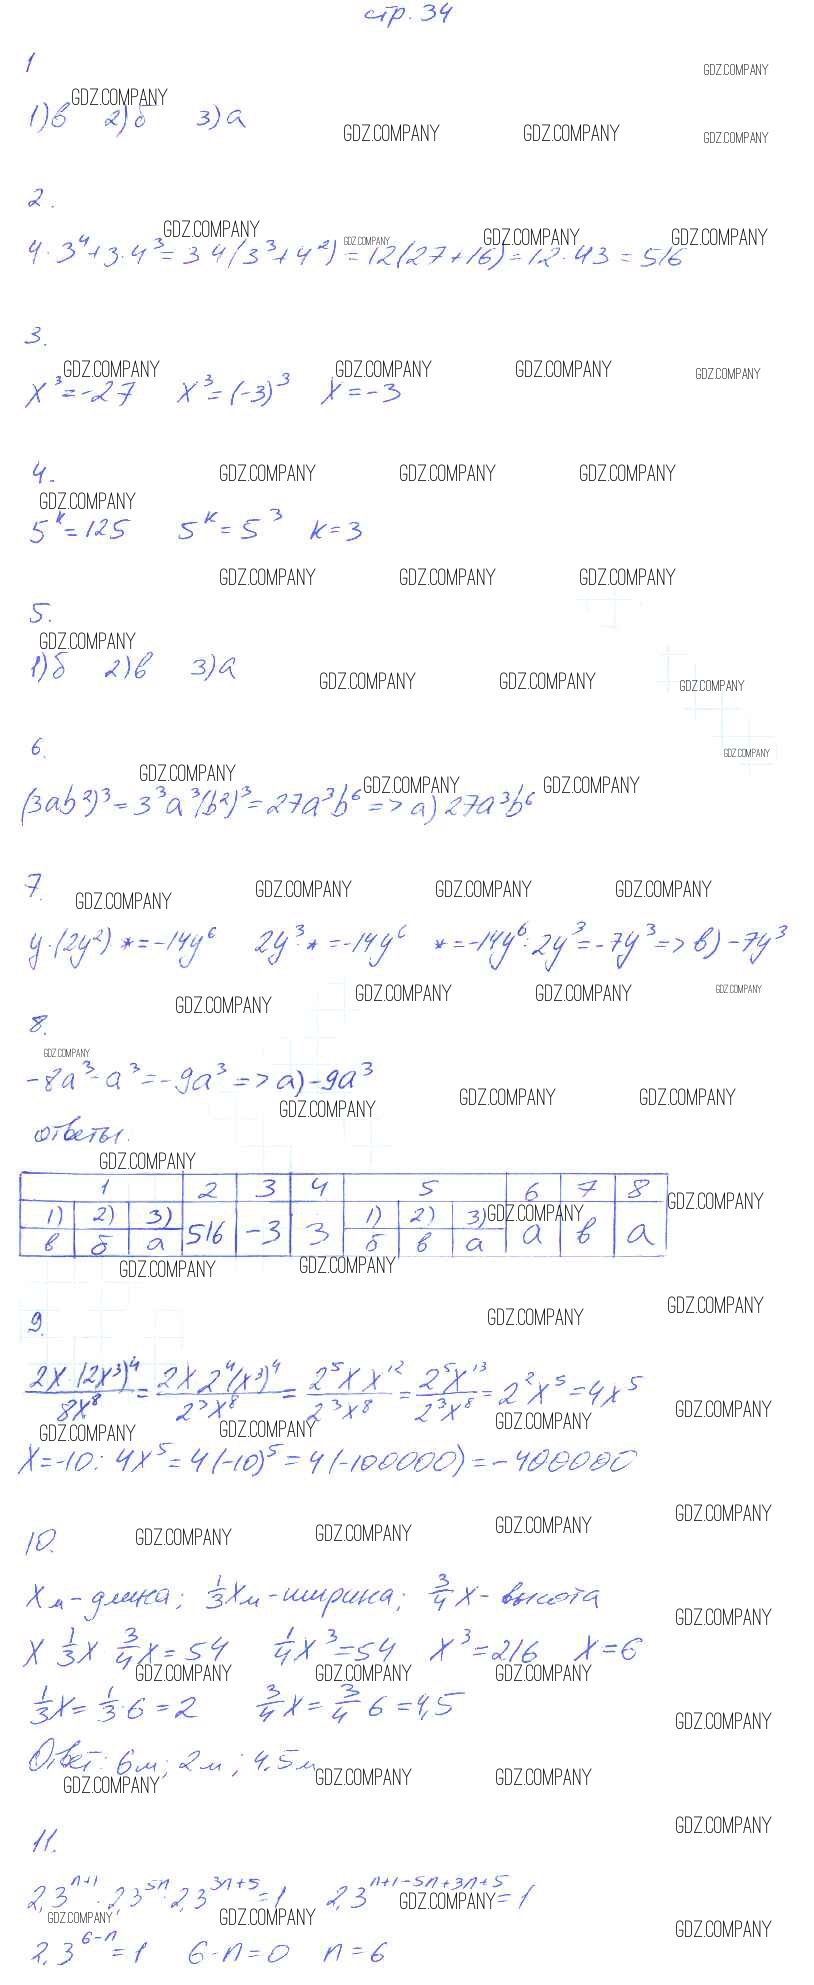 стр. 34
1
1) в 2) б 3) а
2.
4·3⁴+3·4³=3 4(3³+4²)=12(27+16)=12·43=516
3.
x³=-27 x³=(-3)³ x=-3
4.
5ᵏ=125 5ᵏ=5³ k=3
5.
1) б 2) в 3) а
6.
(3ab²)³=3³a³(b²)³=27a³b⁶=> а) 27a³b⁶
7.
y·(2y²)*=-14y⁶ 2y³·*=-14y⁶ *=-14y⁶:2y³=-7y³=> в) -7y³
8.
-8a³-a³=-9a³=> а) -9a³
ответы:
1 2 3 4 5 6 7 8
1) 2) 3) 516 -3 3 1) 2) 3) а в а
в б а б в а
9.
2x·(2x³)⁴/8x⁸ = 2x 2⁴(x³)⁴/2³x⁸ = 2⁵x x¹²/2³x⁸ = 2⁵x¹³/2³x⁸ = 2²x⁵=4x⁵
x=-10: 4x⁵=4(-10)⁵=4(-100000)=-400000
10.
x м - длина; 1/3 x м - ширина; 3/4 x - высота
x 1/3 x 3/4 x=54 1/4 x³=54 x³=216 x=6
1/3 x=1/3·6=2 3/4 x=3/4 6=4,5
Ответ: 6м; 2м; 4,5м
11.
2,3ⁿ⁺¹:2,3⁵ⁿ·2,3³ⁿ⁺⁵=1 2,3ⁿ⁺¹⁻⁵ⁿ⁺³ⁿ⁺⁵=1
2,3⁶⁻ⁿ=1 6-n=0 n=6
GDZ.COMPANY